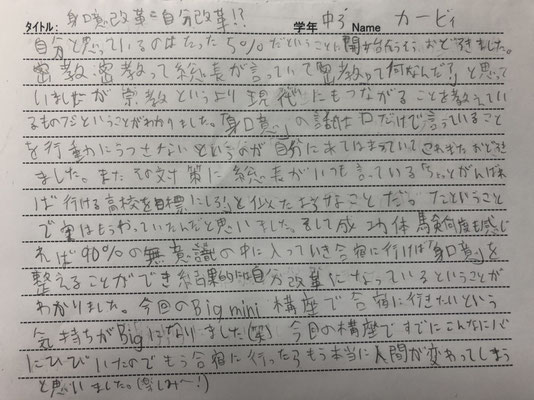 タイトル: 身口意改革=自分改革!! 学年 中3 Name カービィ
自分と思っているのはたった5%だということに関本さんもおどろきました。
密教、密教って総長が言っていて「密教って何なんだろ」と思って
いましたが宗教というより現代にもつながることを教えてい
るものナンということがわかりました。「身口意」の話は口だけで言っていること
を行動にうつさないというのが自分にあてはまっていてこれまたおどろき
ました。また その対策に総長がいつも言っている「ちょっとがんばれ
ば行ける高校を目標にしろ!」と似たようなことだったということ
で実はもうやっていたんだと思いました。そして成功体験何度も感じ
れば90%の無意識の中に入っていき合宿に行けば「身口意」を
整えることができ結果的には自分改革になっているということが
わかりました。今回のBig mini 講座で合宿に行きたいという
気持ちがBigになりました(笑) 今回の講座ですでにこんなに心
にひびいたのでもう合宿に行ったらもう本当に人間が変わってしまう
と思いました。(楽しみ〜!)